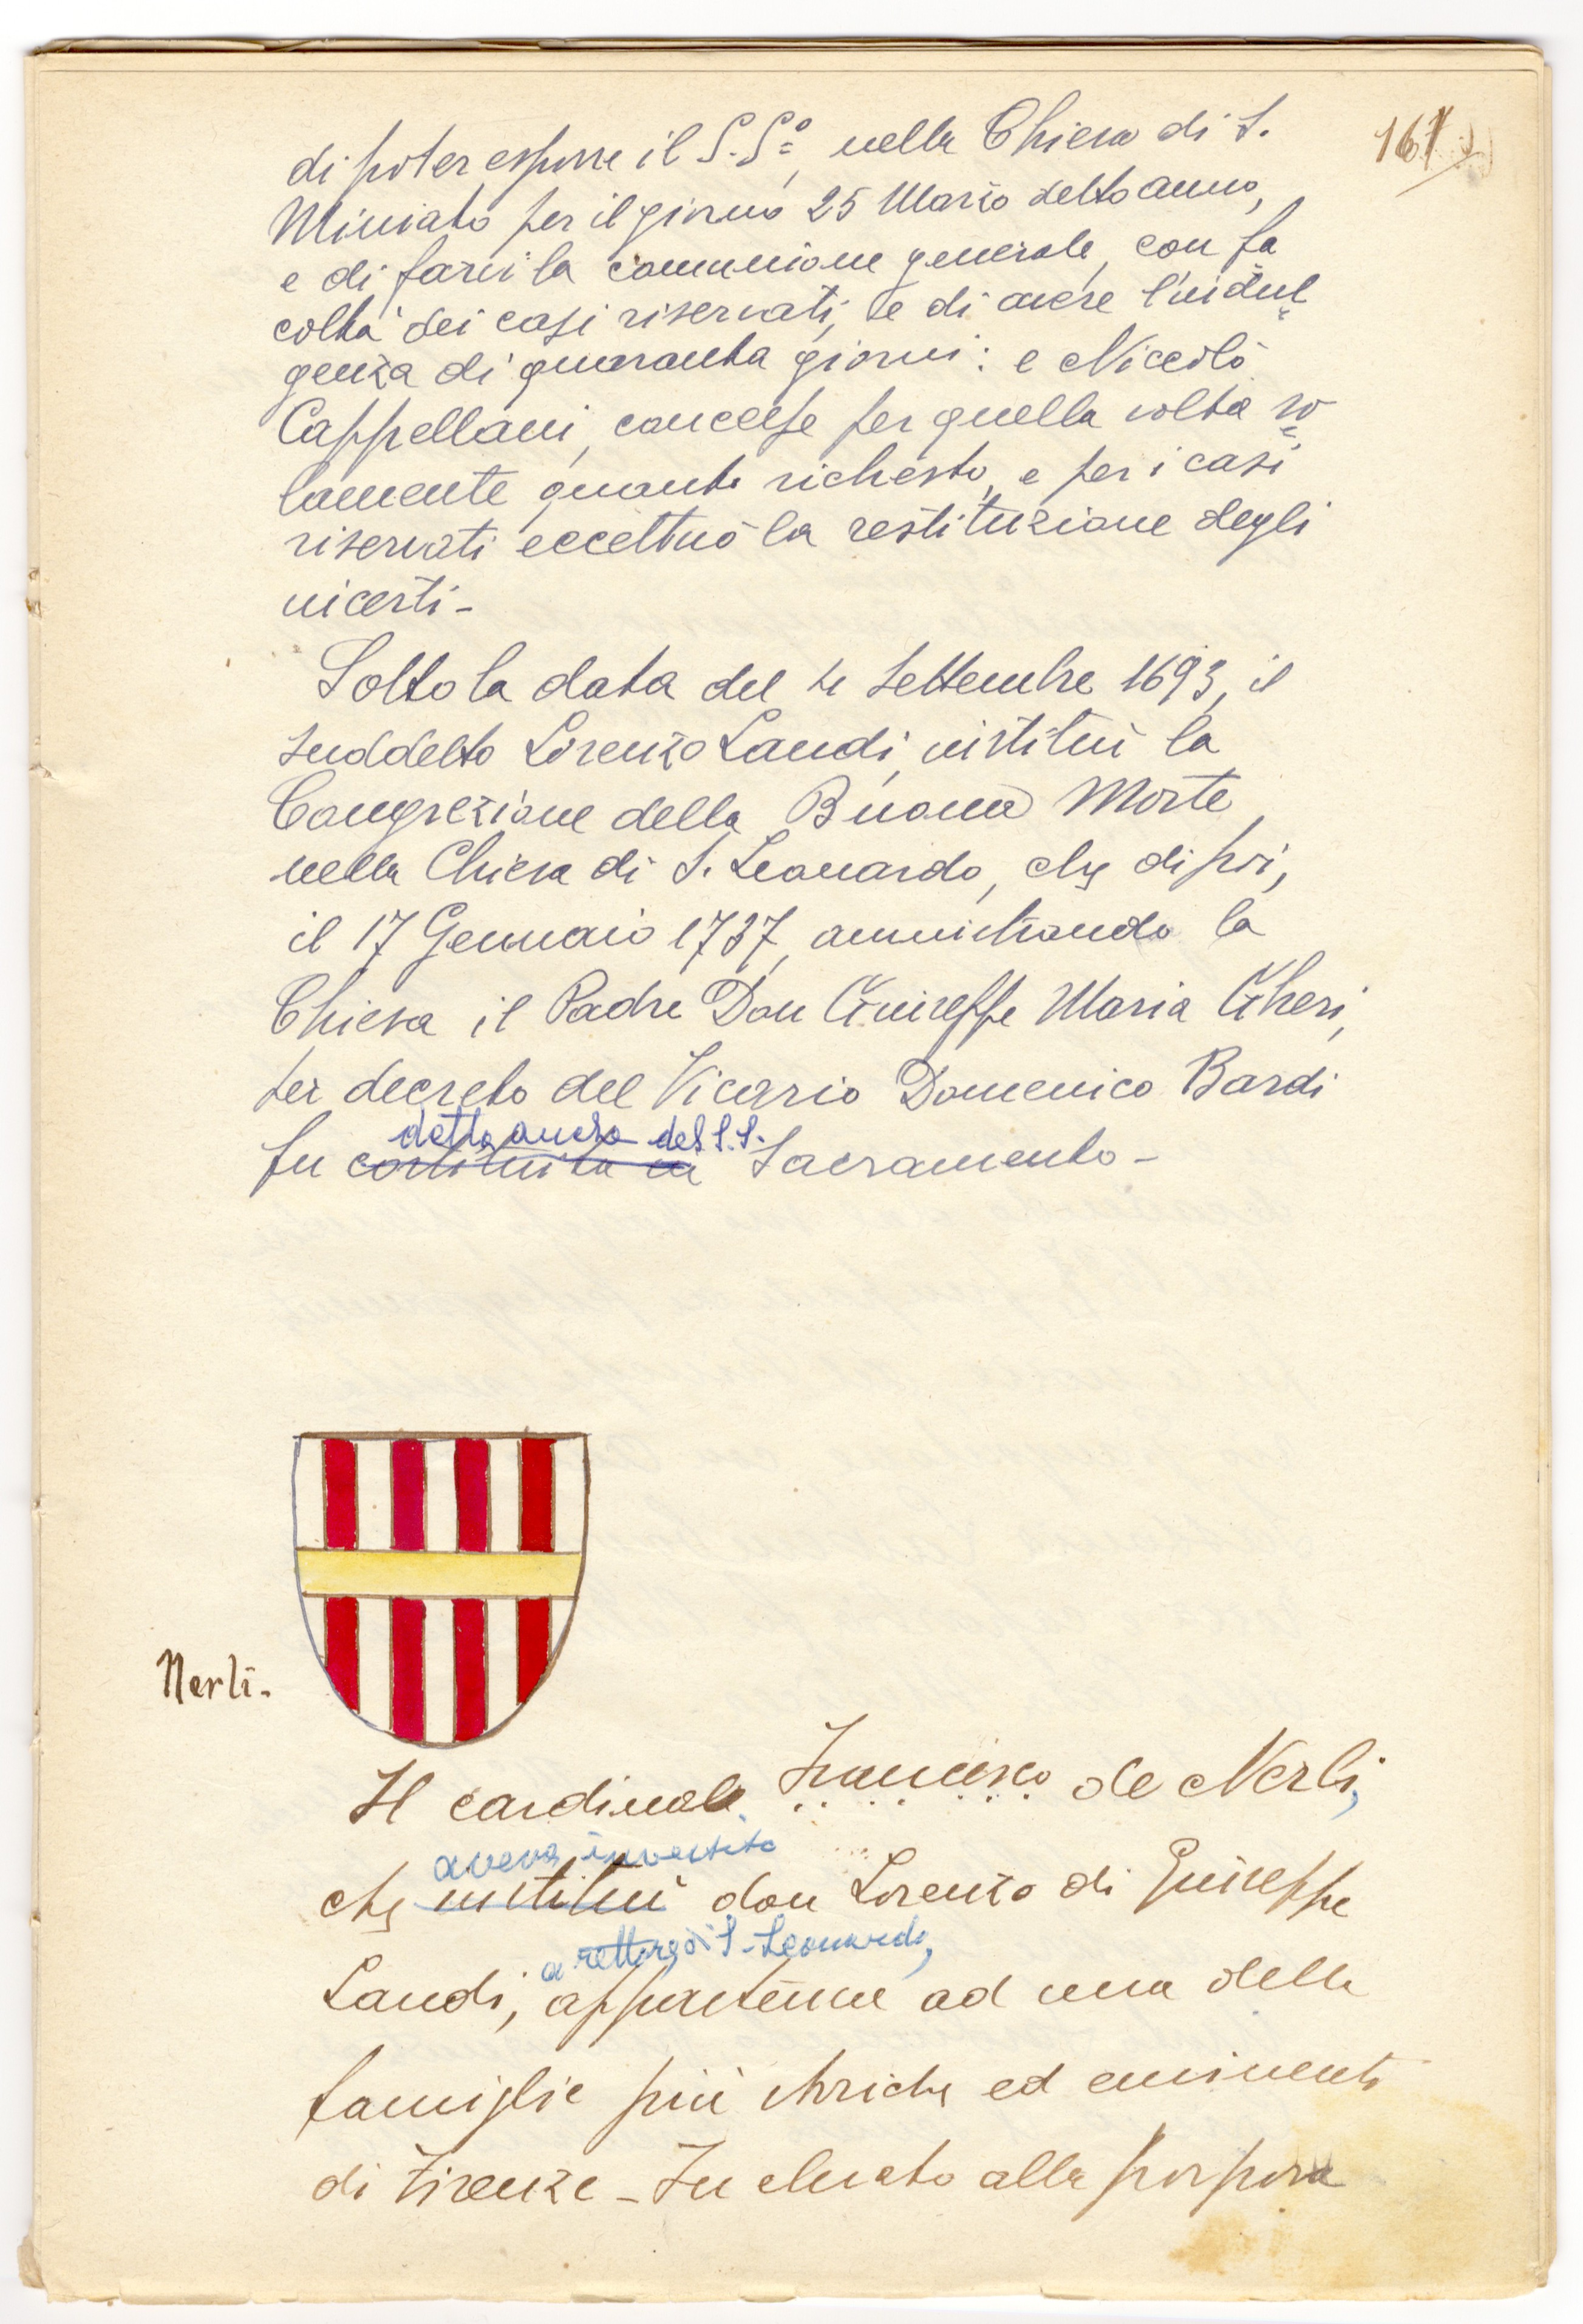 161
di poter esporre il S. Sº, nella Chiesa di S.
Miniato per il giorno 25 Marzo detto anno,
e di farvi la comunione generale, con fa
coltà dei casi riservati, e di avere l'indul
genza di quaranta giorni: e Niccolò
Cappellani, concesse per quella volta so
lamente quanto richiesto, e per i casi
riservati eccettuò la restituzione degli
incerti -
Sotto la data del 4 Settembre 1693, il
suddetto Lorenzo Landi, istituì la
Congrezione della Buona Morte
nella Chiesa di S. Leonardo, che di poi,
il 17 Gennaio 1737, amministrando la
Chiesa il Padre Don Giuseppe Maria Gheri,
per decreto del Vicario Domenico Bardi
detta anche del S.S.
fu costituita in Sacramento -
Nerli -
Il cardinale Francesco de Nerli,
aveva investito
che istituì don Lorenzo di Giuseppe
a rettore di S. Leonardo,
Landi, appartenne ad una delle
famiglie più storiche ed eminenti
di Firenze - Fu elevato alla porpora